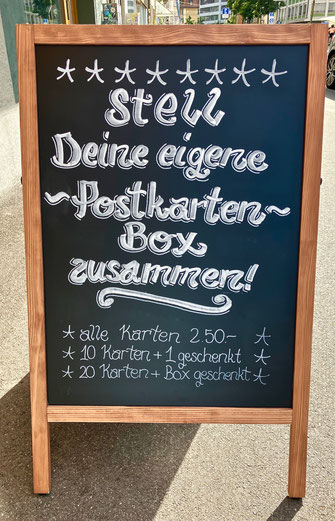 Stell
Deine eigene
~Postkarten~
Box
zusammen!
* alle Karten 2.50- *
* 10 Karten + 1 geschenkt *
* 20 Karten + Box geschenkt *